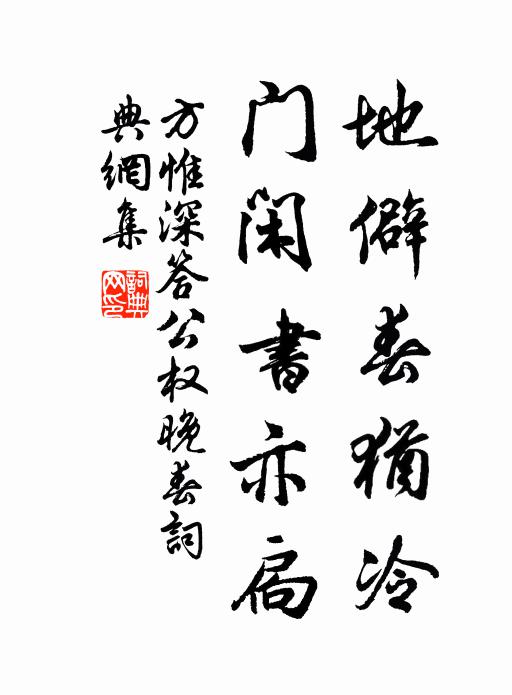 地僻春犹冷
门闲書亦扃
方惟深答公权晚春詞
典網集
詞典网印